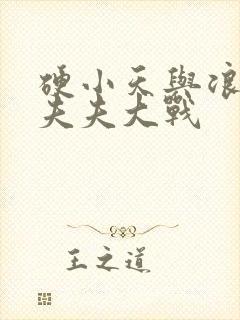 硬小天與浪
夫夫大戰
王之道